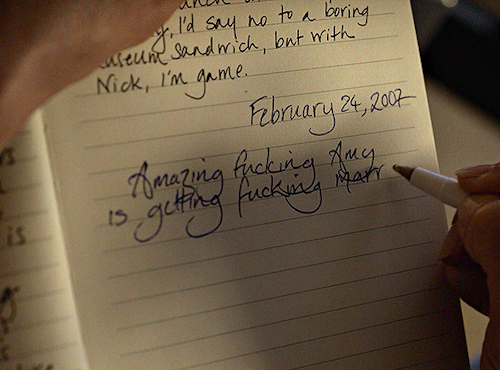 I'd say no to a boring
museum sandwich, but with
Nick, I'm game.
February 24, 2007
Amazing fucking Amy
is getting fucking marr
is